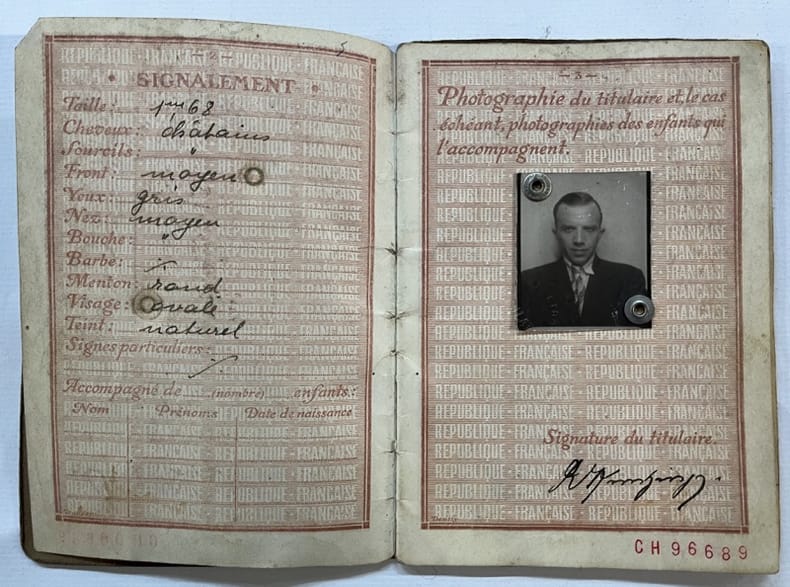 — 2 —
SIGNALEMENT
Taille : 1m 68
Cheveux : châtains
Sourcils : "
Front : moyen
Yeux : gris
Nez : moyen
Bouche : "
Barbe :
Menton : rond
Visage : ovale
Teint : naturel
Signes particuliers :
Accompagné de (nombre) enfants :
Nom Prénoms Date de naissance
— 3 —
Photographie du titulaire et, le cas
échéant, photographies des enfants qui
l'accompagnent.
RÉPUBLIQUE - FRANÇAISE
Signature du titulaire.
CH96689